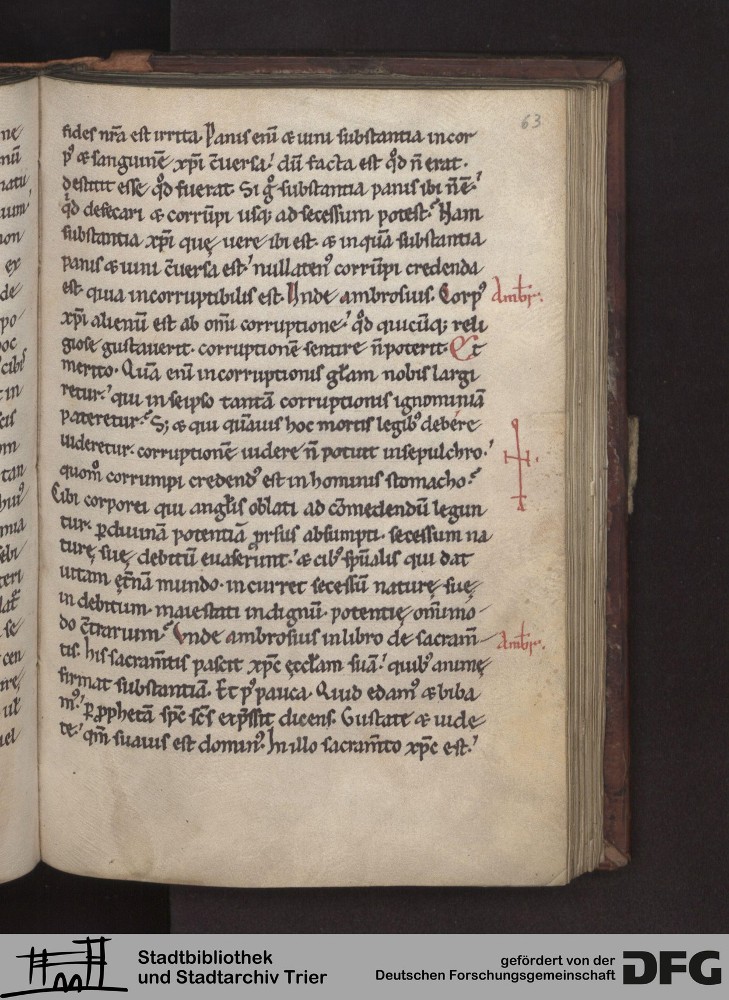 63
fides nr̄a est irrita. Panis enī & uini substantia in cor
pꝰ & sanguinē xp̄i c̄uersa.' dū facta est qͦd n̄ erat.
destitit esse qͦd fuerat. Si gͦ substantia panis ibi n̄ ē.'
qͦd defecari & corrūpi usq; ad secessum potest.' Nam
substantia xp̄i quę uere ibi est. & in quā substantia
panis & uini c̄uersa est.' nullatenꝰ corrūpi credenda
est. quia incorruptibilis est. Unde ambrosius. Corpꝰ
Ambr̄.
xp̄i alienū est ab om̄i corruptione.' qͦd quicūq; reli
giose gustauerit. corruptionē sentire n̄ poterit. Et
merito. Quā enī incorruptionis gl̄am nobis largi
retur.' qui in seipso tantā corruptionis ignominiā
pateretur.' S; & qui quāuis hoc mortis legibꝰ debére
uideretur. corruptionē uidere n̄ potuit in sepulchro.'
quom̊ corrumpi credendꝰ est in hominis stomacho.'
Cibi corporei qui angl̄is oblati ad cōmedendū legun
tur. ꝑ diuinā potentiā ꝓrsus absumpti. secessum na
turę suę debitū euaserunt.' & cibꝰ sp̄ualis qui dat
uitam ęt̄nā mundo. incurret secessū naturę suę
in debitum. maiestati indignū. potentię om̄imo
do c̄trarium.' Vnde ambrosius in libro de sacram̄
Ambr̄.
tis. his sacram̄tis pascit xp̄c ęccl̄am suā.' quibꝰ animę
firmat substantiā. Et pꝰ pauca. Quid edamꝰ & biba
mꝰ.' ꝑ ꝓphetā sp̄c sc̄s exp̄ssit dicens. Gustate & uide
te.' qm̄ suauis est dominꝰ. In illo sacram̄to xp̄c est.'
Stadtbibliothek
und Stadtarchiv Trier
gefördert von der
Deutschen Forschungsgemeinschaft
DFG